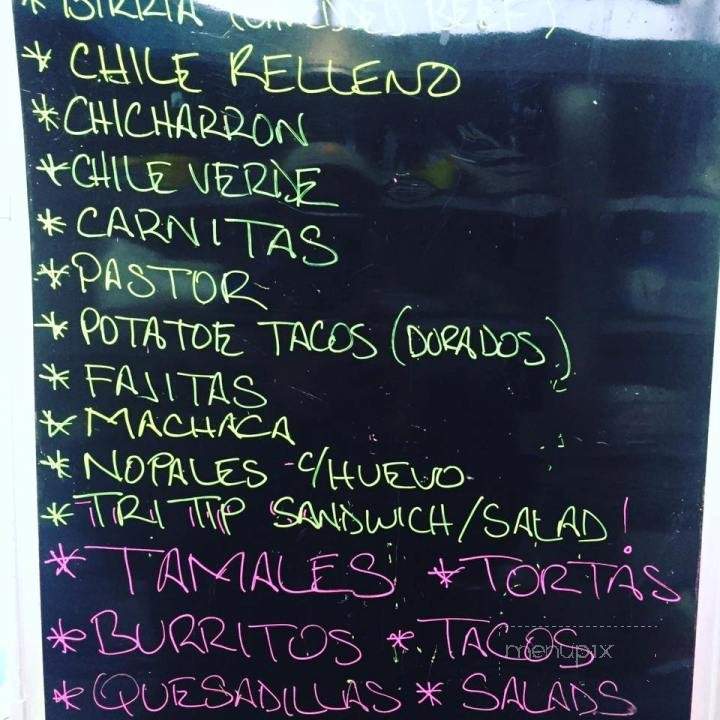 * BIRRIA (
* CHILE RELLENO
* CHICHARRON
* CHILE VERDE
* CARNITAS
* PASTOR
* POTATOE TACOS (DORADOS)
* FAJITAS
* MACHACA
* NOPALES C/HUEVO
* TRI TIP SANDWICH/SALAD!
* TAMALES * TORTAS
* BURRITOS * TACOS
menupix
* QUESADILLAS * SALADS